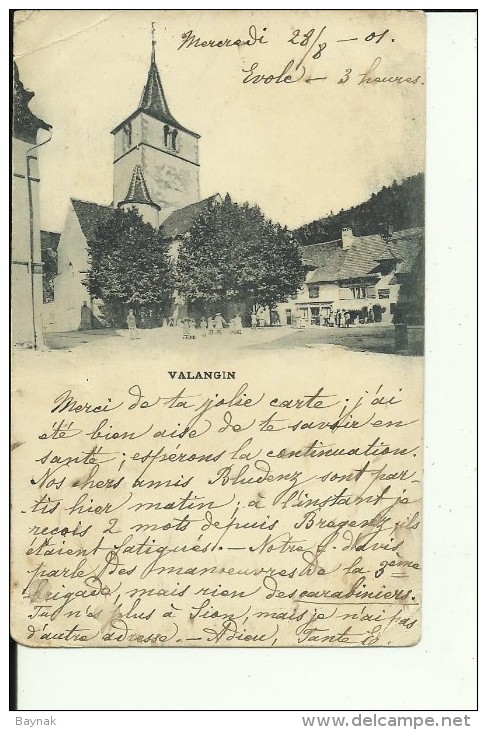 Mercredi 28/8 - 01.
Evole - 3 heures.
VALANGIN
Merci de ta jolie carte; j'ai
été bien aise de te savoir en
santé; espérons la continuation.
Nos chers amis Bludenz sont par-
tis hier matin; à l'instant je
reçois 2 mots depuis Bregenz, ils
étaient fatigués. - Notre f. d'avis
parle des manoeuvres de la 3ème
brigade, mais rien des carabiniers.
Tu n'es plus à Sion, mais je n'ai pas
d'autre adresse. - Adieu, Tante
Baynak
www.delcampe.net